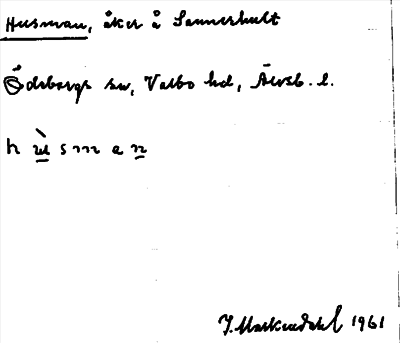 Husman, åker å Sannerhult
Ödsborgs sn, Valbo hd, Älvsb. l.
h ù s m a n
J. Markendahl 1961